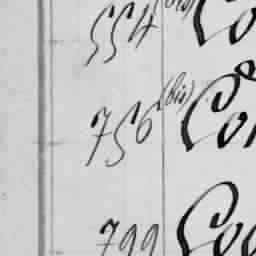 554 (bis) Co
756 (bis) Con
799 Coo